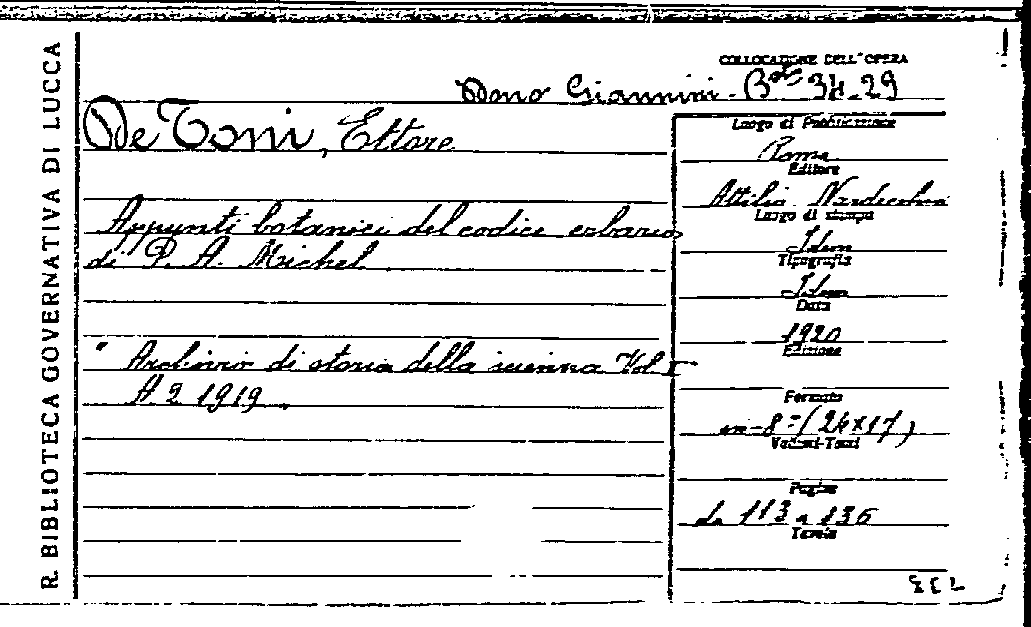 R. BIBLIOTECA GOVERNATIVA DI LUCCA
COLLOCAZIONE DELL'OPERA
Dono Giannini. Bus 34.29
De Toni, Ettore
Appunti botanici del codice erbario
di P. A. Michel
" Archivio di storia della scienza Vol I
A 2 1919.
Luogo di Pubblicazione
Roma
Editore
Attilio Nardecchia
Luogo di stampa
Idem
Tipografia
Idem
Data
1920
Edizione
Formato
in-8° (24x17)
Volumi-Tomi
Pagine
da 113 a 136
Tavole